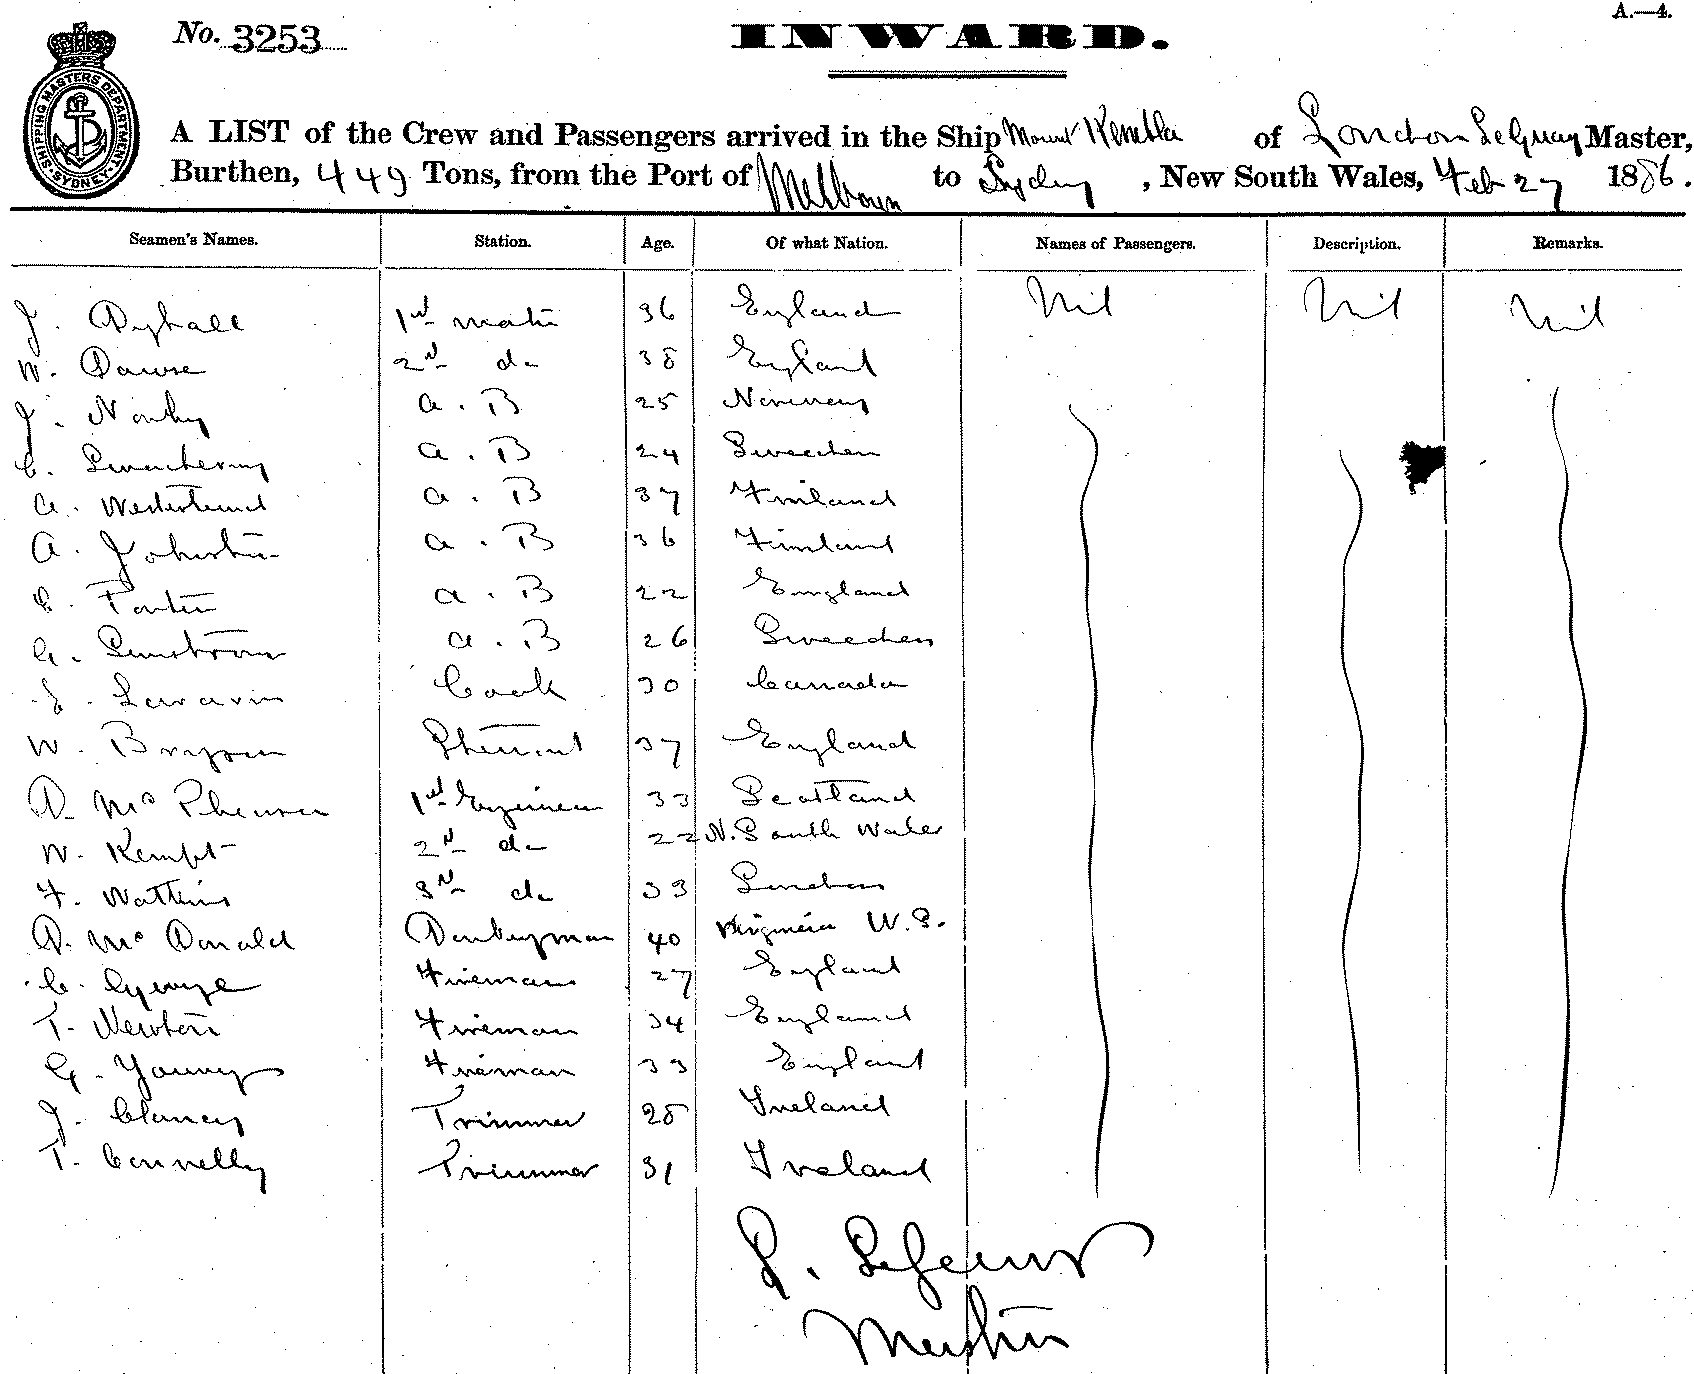 A.—4.
No. 3253
INWARD.
SHIPPING MASTERS DEPARTMENT SYDNEY
A LIST of the Crew and Passengers arrived in the Ship Mount Kembla of London Master,
Burthen, 449 Tons, from the Port of Melbourn to Sydney, New South Wales, Feb 27 1886.
Seamen's Names. Station. Age. Of what Nation. Names of Passengers. Description. Remarks.
J. 1st mate 36 England Nil Nil Nil
W. Dawse 2nd do 38 England
J. Norby A. B 25 Norway
C. A. B 24 Sweeden
A. Westerlund A. B 37 Finland
A. Johnston A. B 36 Finland
C. Porter A. B 22 England
G. Sunstrom A. B 26 Sweeden
Cook 30 Canada
W. Bryson 37 England
D. McPherson 1st Engineer 33 Scotland
W. Kempt 2nd do 22 N. South Wales
F. Watkins 3rd do 33
D. McDonald Donkeyman 40 Virginia
C. George Fireman 27 England
T. Newton Fireman 34 England
G. Young Fireman 33 England
J. Clancy Trimmer 28 Ireland
T. Connelly Trimmer 31 Ireland
Master